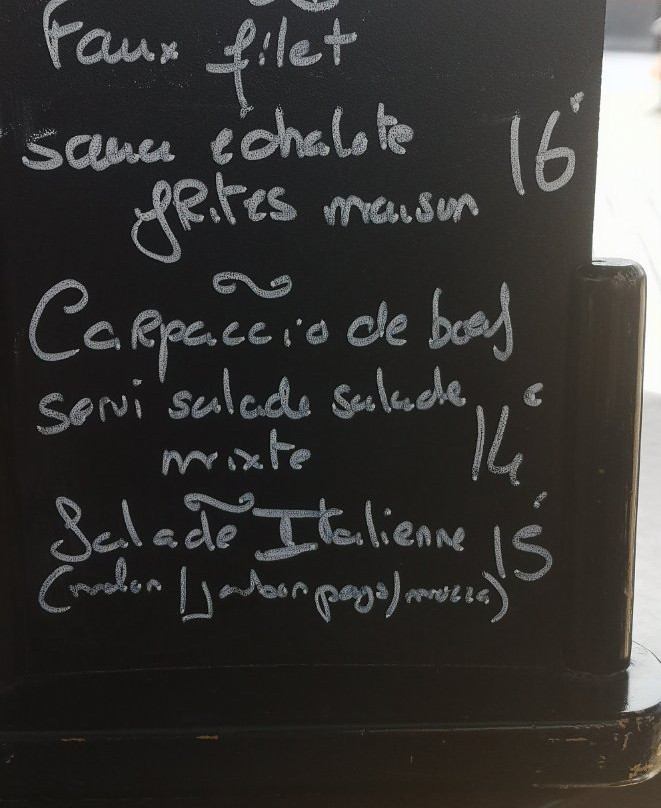 Faux filet
sauce échalote 16€
FRites maison
Carpaccio de boeuf
servi salade salade
mixte 14€
Salade Italienne 15€
(melon / jambon pays / mozza)